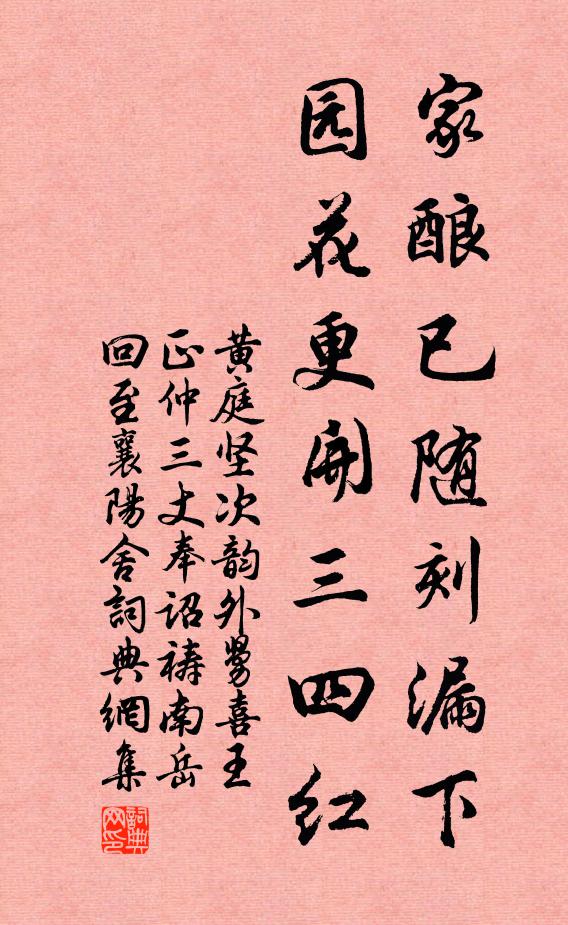 家酿已随刻漏下
园花更開三四红
黄庭坚次韵外舅喜王
正仲三丈奉诏禱南岳
回至襄陽舍詞典網集
詞典
网印